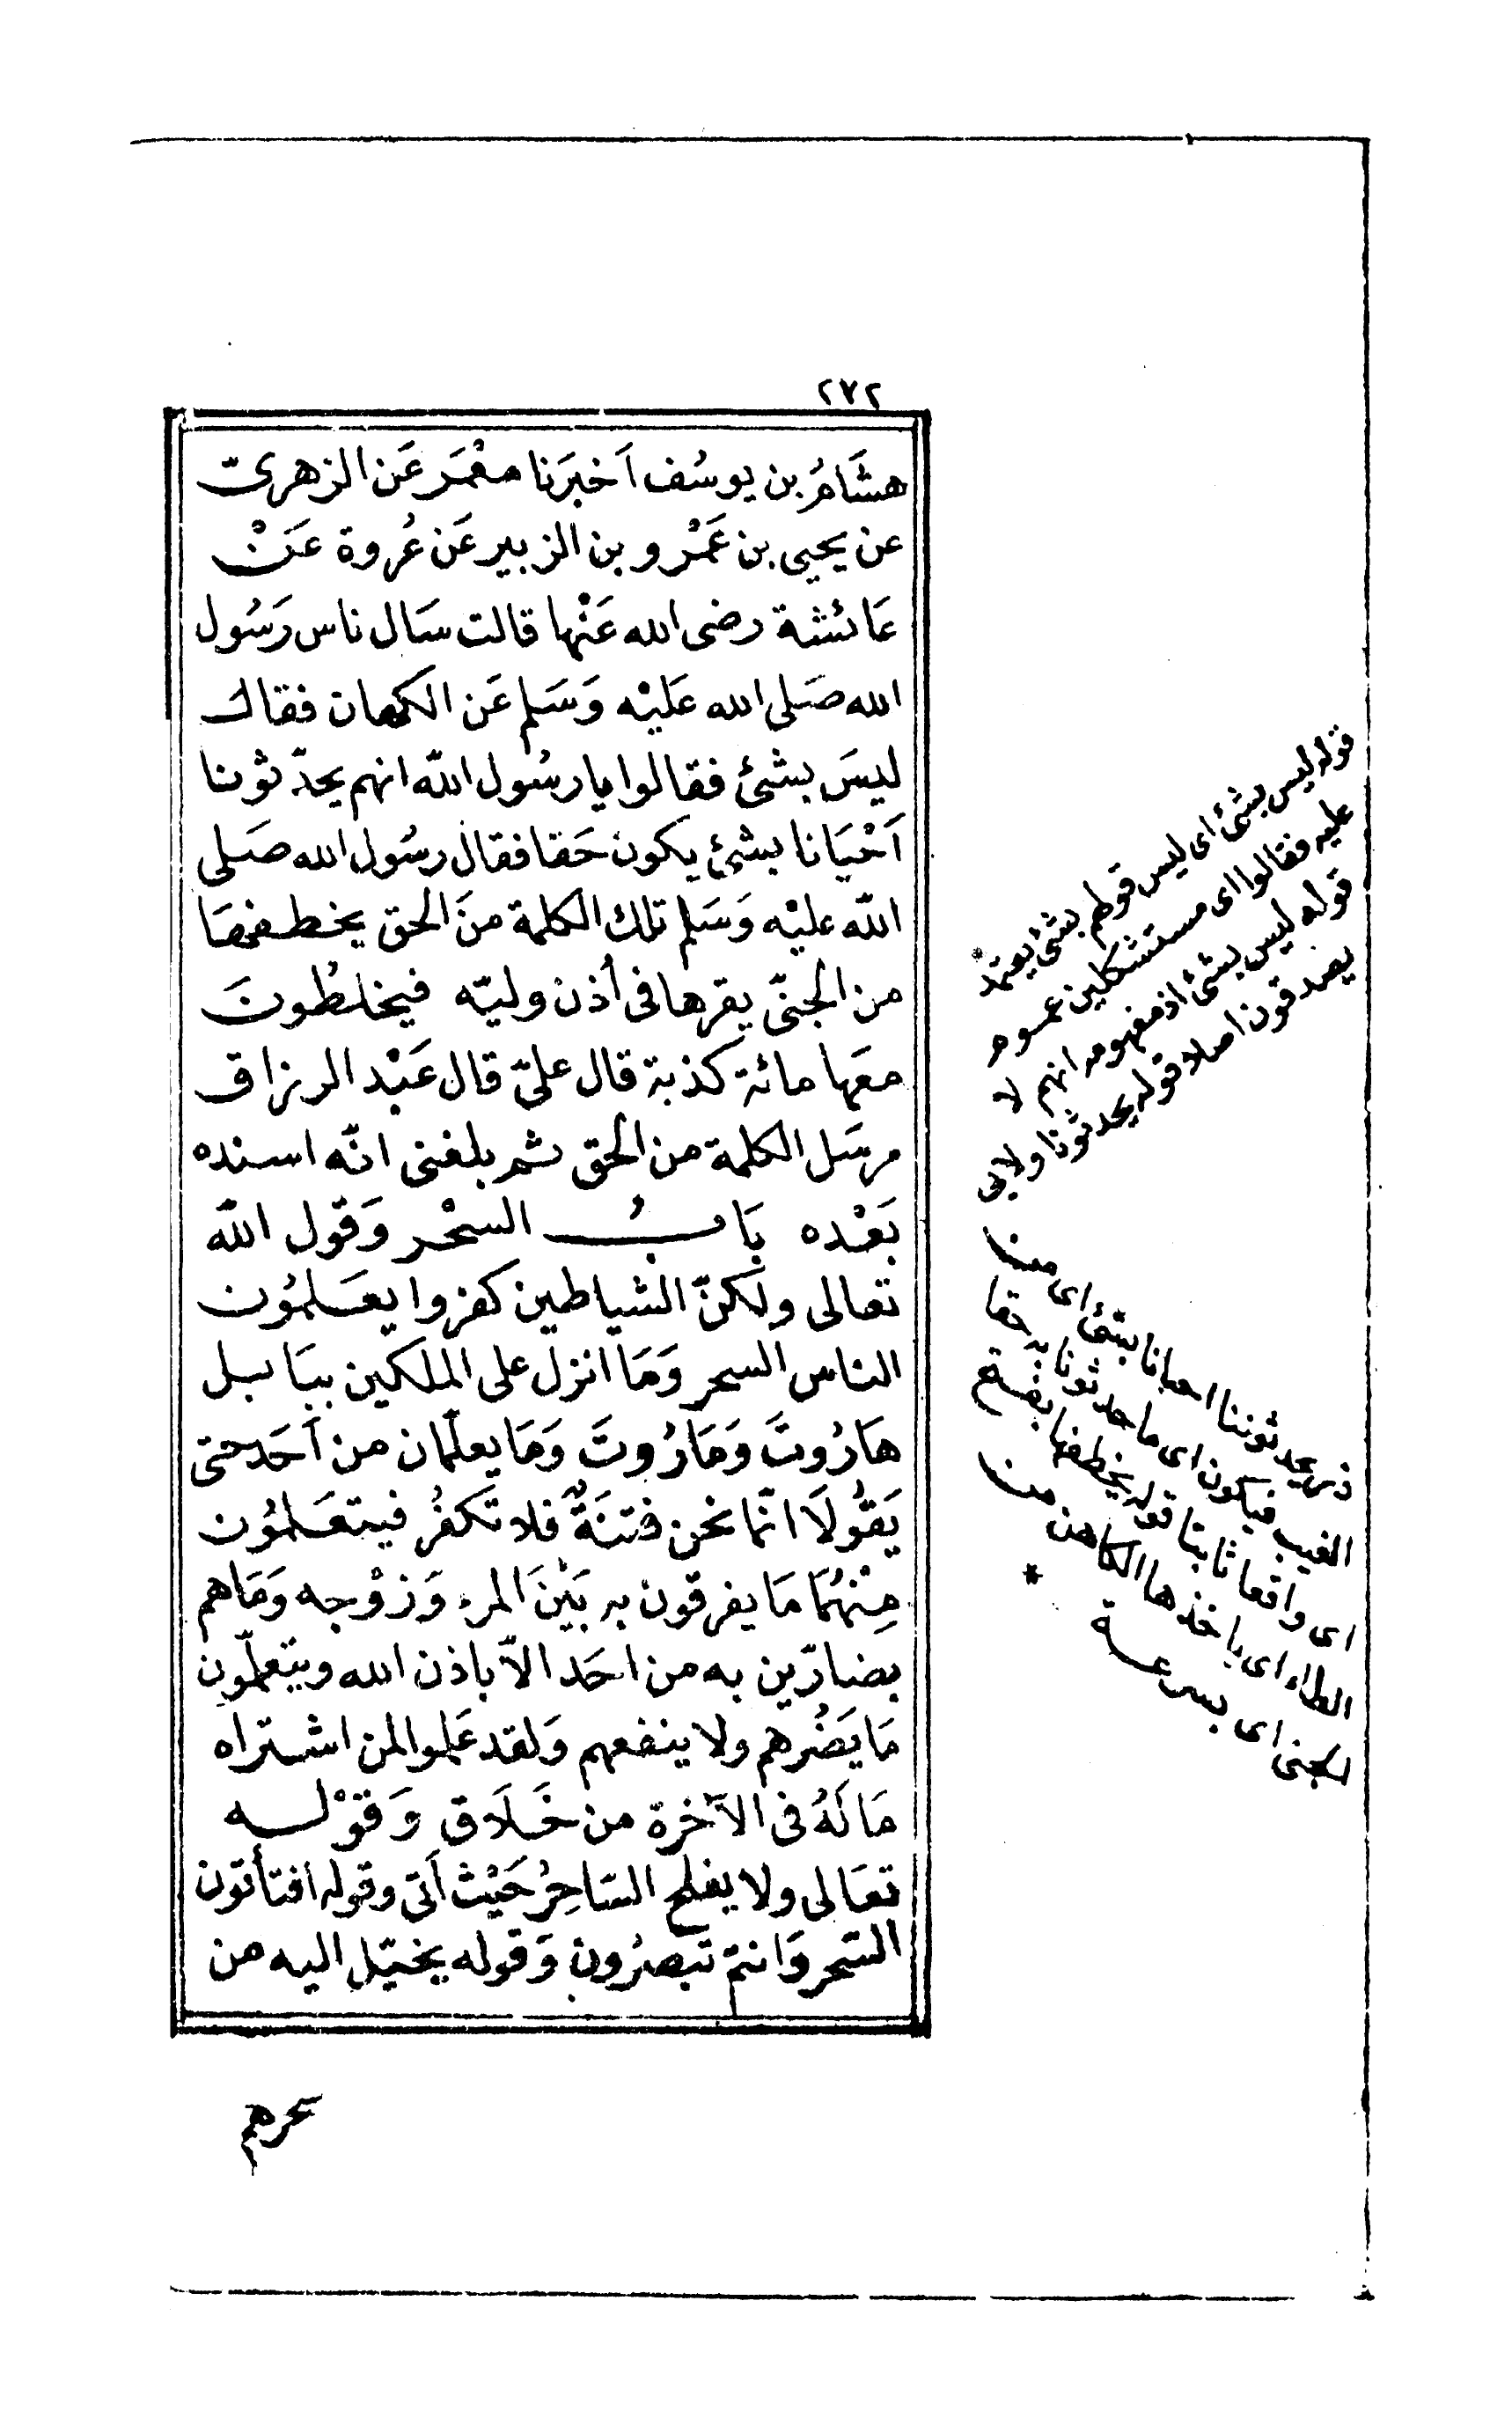 ٢٧٢
هشَامُ بن يوسُف اَخبَرَنا معْمَر عَن الزهرىّ
عن يحيى بن عَمْرو بن الزبير عَن عُروة عَنْ
عَائشة رضى الله عَنْها قالت سَال ناس رَسُول
الله صَلى الله عَليْه وَسَلم عَن الكهان فقال
ليسَ بشئ فقالوا يا رسُول اللّه انهم يحدّثونا
اَحْيَانا بشئ يكون حَقا فقال رسُول الله صَلى
اللّه عليْه وَسَلم تلك الكلمة منَ الحق يخطفهَا
من الجنىّ يقرها فى أذن وليّه فيخلطُونَ
معَها مائة كذبة قال علىّ قال عَبْد الرزاق
مرسَل الكلمة من الحق ثم بلغنى انّه اسنده
بَعْده بَابُ السحْر وَقول اللّه
تعالى ولكنّ الشياطين كفروا يعَلمُون
الناس السحر وَمَا انزل على الملكين ببَابل
هَارُوتَ وَمَارُوتَ وَمَا يعلّمان من اَحَد حتى
يَقُولَا انّما نحن فتنَةٌ فلا تكفُر فيتعَلمُون
مِنْهُمَا مَا يفرقون به بَيْنَ المرء وَزوْجه وَمَاهم
بضارّين به من احَد الاّ باذن الله ويتعلّمون
مَا يَضُرهم ولا ينفعهم وَلقد عَلموا لمن اشتراه
مَا لَهُ فى الآخرة من خَلَاق وَقوْله
تعَالى ولا يفلح السّاحِرُ حَيْث أتى وقوله افتأتون
السّحر وَانتم تبصرُون وَقوله يخيّل اليه من
سحرهم
قوله ليس بشئ اى ليس قولهم بشئ يعتمد
عليه فقالوا اى مستشكلين عموم
قوله ليس بشئ اذ مفهومه انهم لا
يصدقون اصلا قوله يحدثونا ولابى
ذر يحدثوننا احيانا بشئ اى من
الغيب فيكون اى ما حدثونا به حقا
اى واقعا ثابتا قوله يخطفها بفتح
الطاء اى ياخذها الكاهن من
الجنى اى بسرعة *